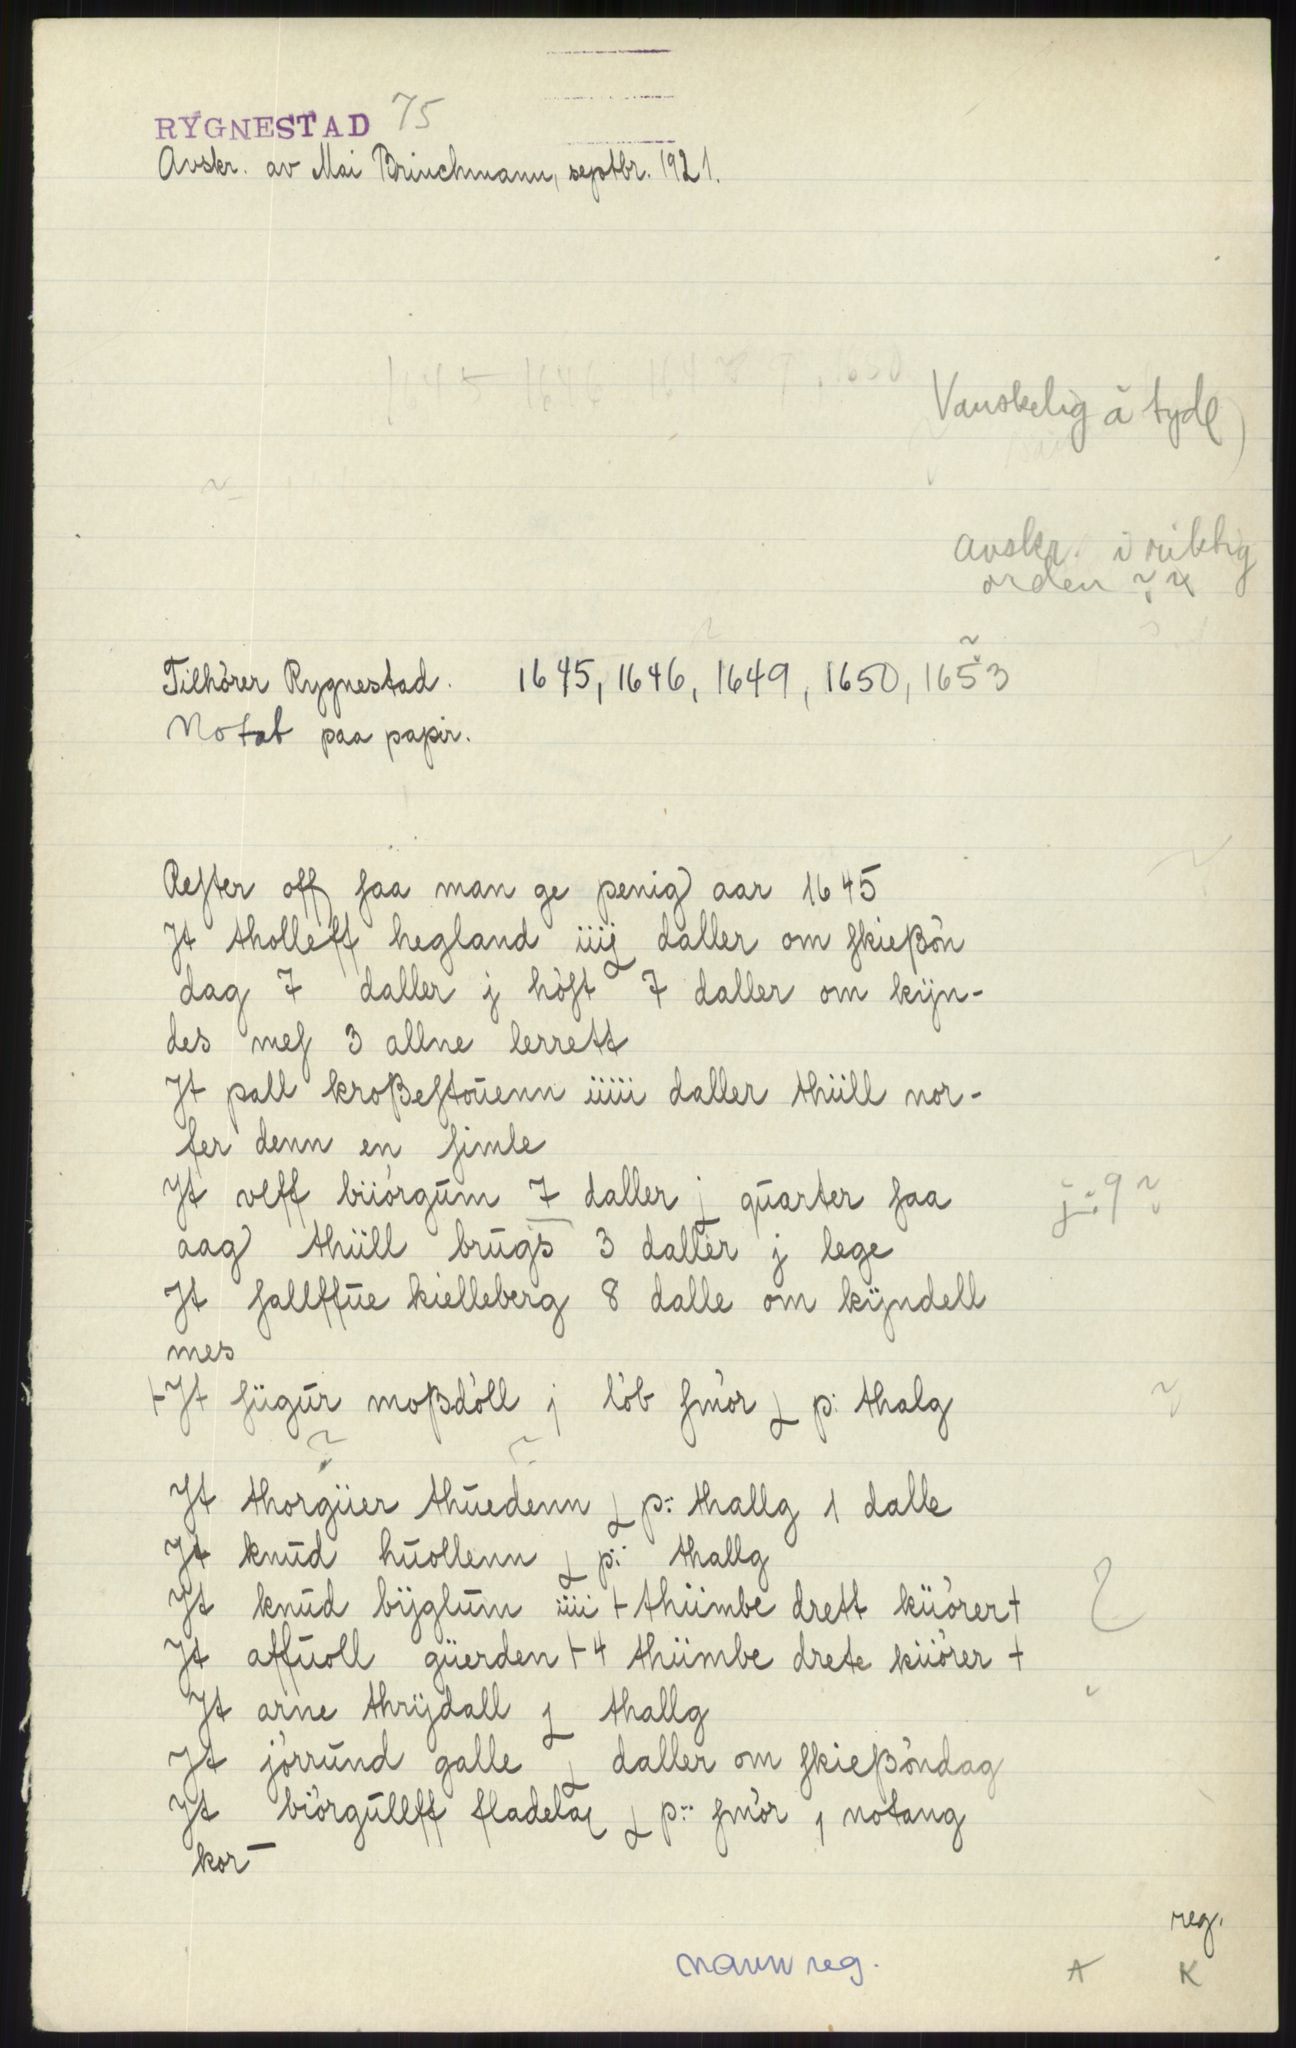 RYGNESTAD 75
Avskr. av Mai Brinchmann, septbr. 1921.
Vanskelig å tyde
avskr. i riktig
orden ??
Tilhörer Rygnestad. 1645, 1646, 1649, 1650, 1653
Notat paa papir.
Reſter off ſaa man ge penig aar 1645
Jt tholleff hegland iiij daller om ſkießön
dag 7 daller j höſt 7 daller om kÿn-
des meſ 3 allne lerrett
Jt pall kroßeſtouenn iiiii daller thiill nor-
fer denn en ſimle
Jt vlff biiórgum 7 daller j quarter ſaa
j: 9 ?
aag thiill brugs 3 daller j lege
Jt ſallffue kielleberg 8 dalle om kÿndell
mes
+ Jt ſügur moßdöll j löb ſmör j p: thalg
Jt thorgüer thuedenn j p: thallg 1 dalle
Jt knud huollenn j p: thallg
Jt knud bÿglum iiii + thümbe drett küörer +
Jt affuoll güerden + 4 thümbe drete küörer +
Jt arne thrÿdall j thallg
Jt jörrund galle j daller om ſkießöndag
Jt biörgullff fladelæ j p: ſmör j notang
kor-
reg.
navn reg. A K